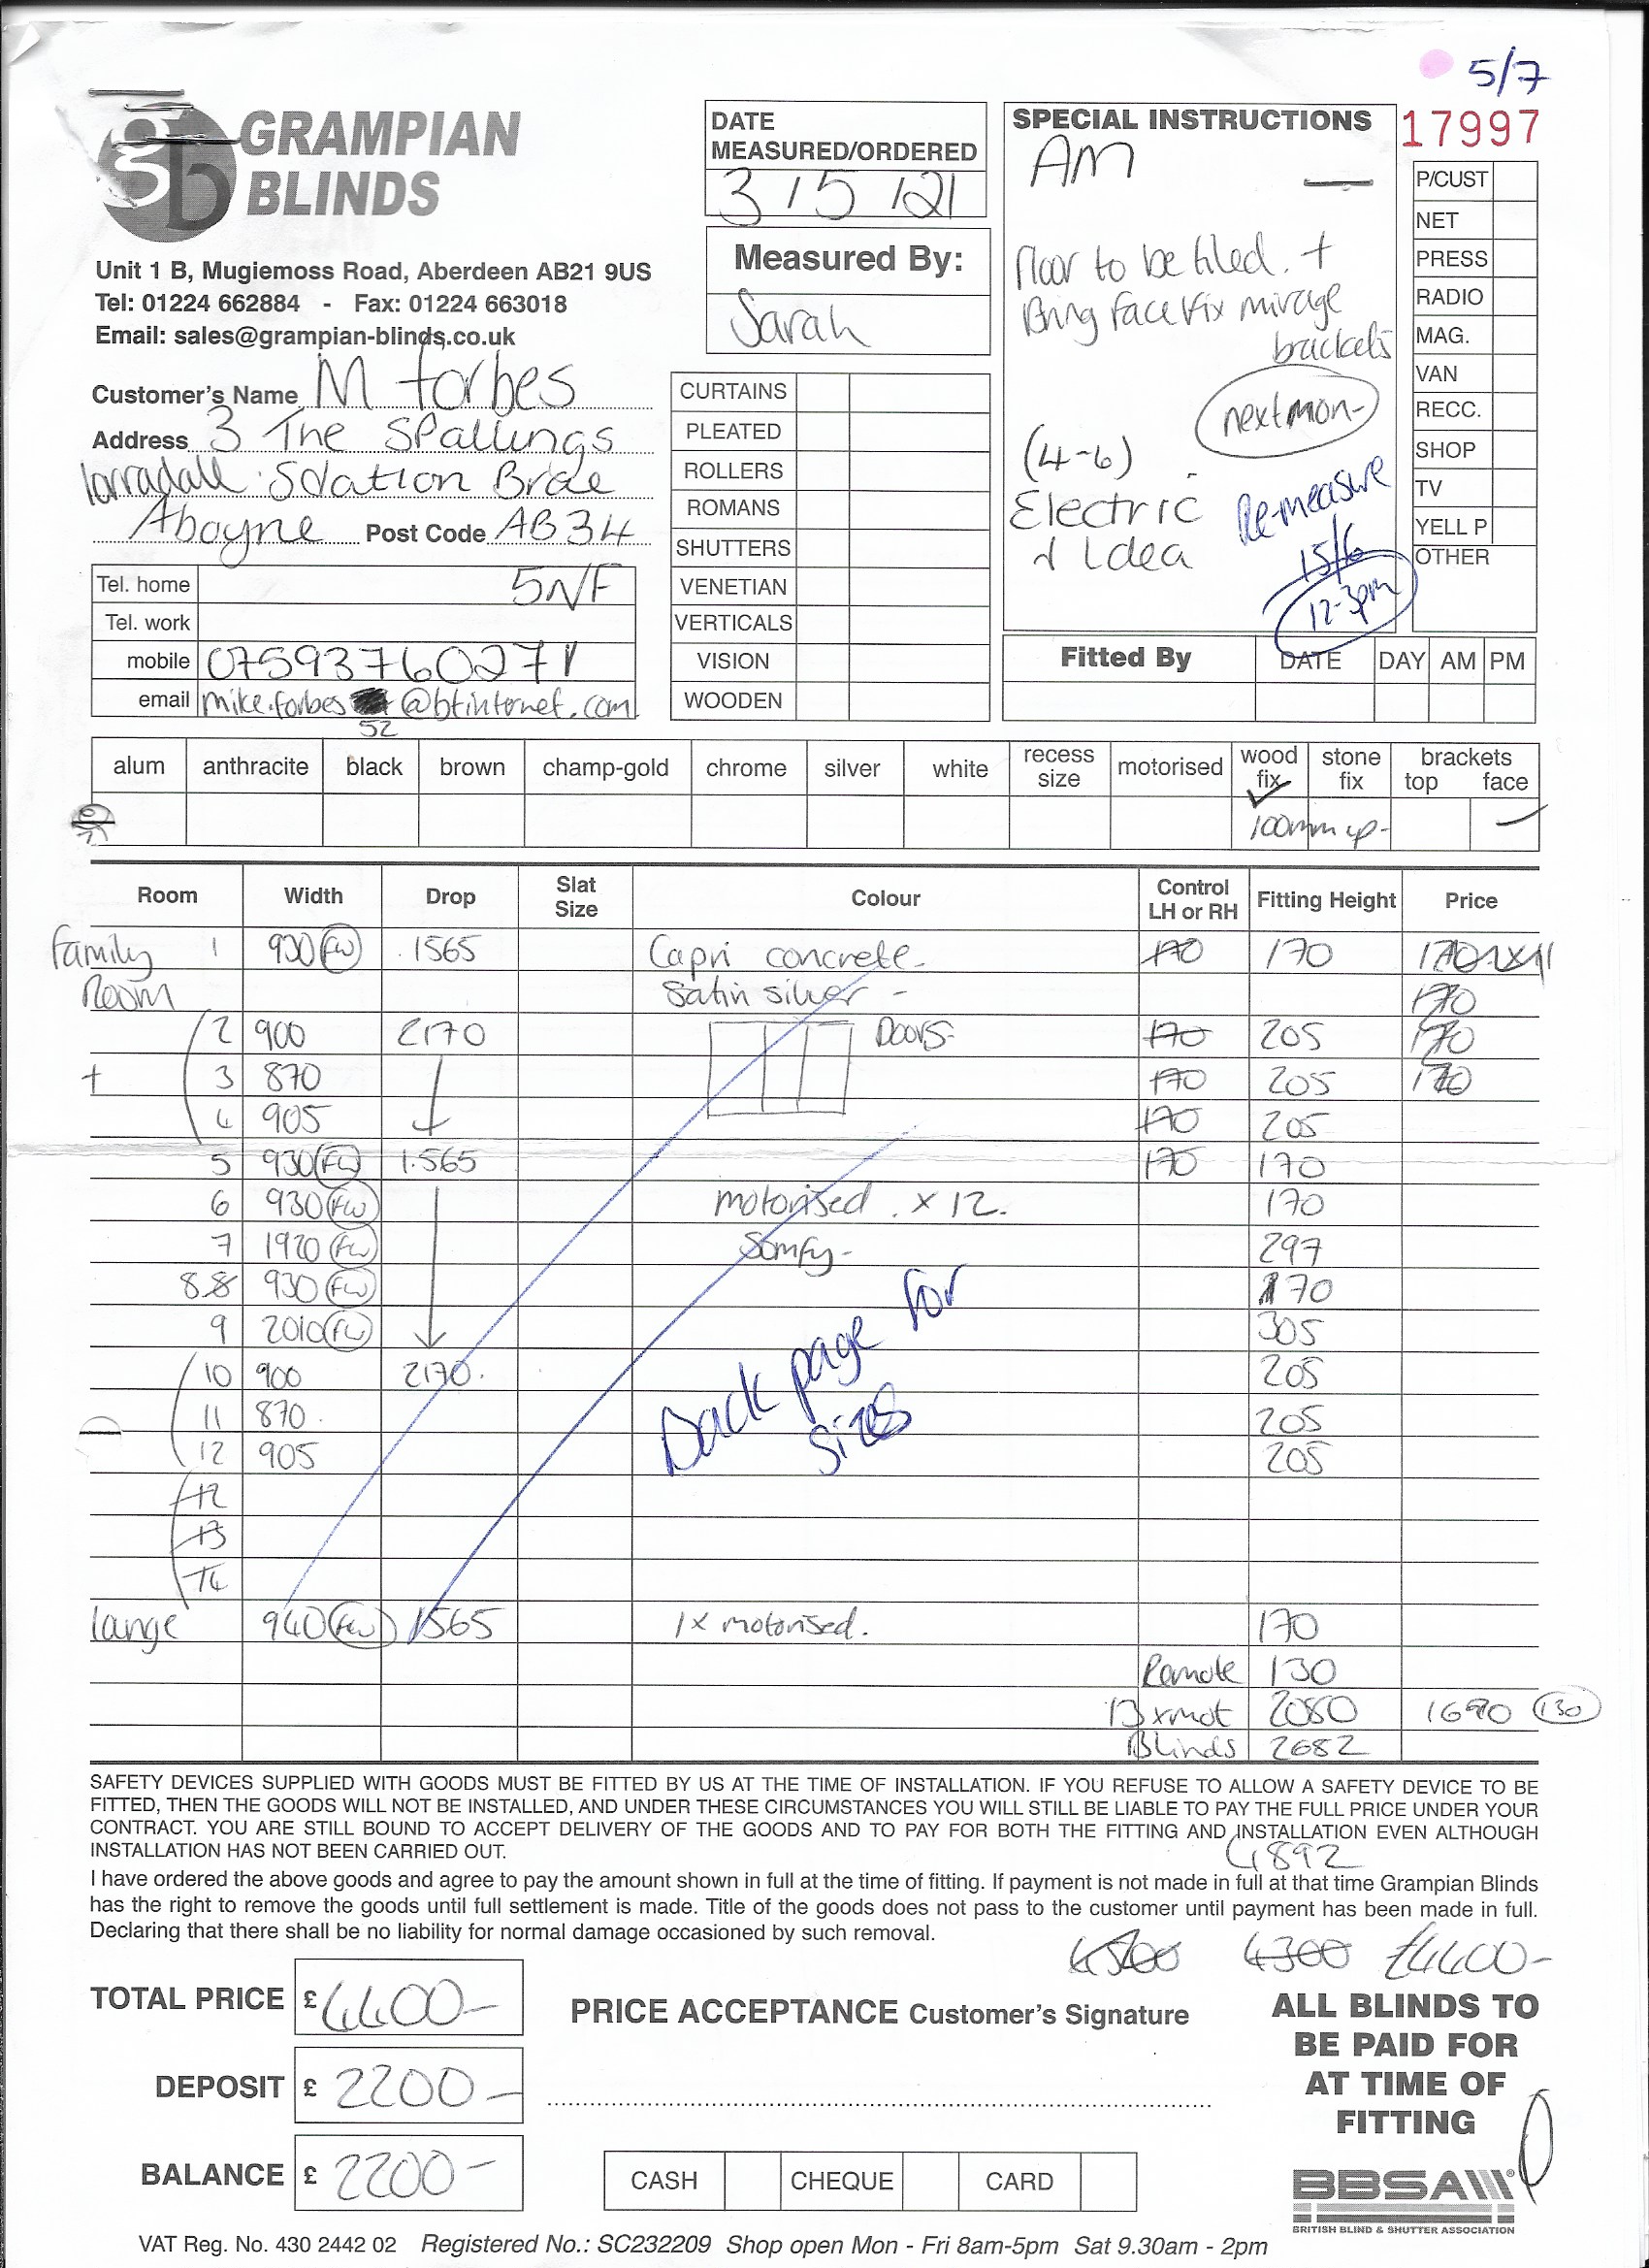 5/7
GRAMPIAN
BLINDS
Unit 1 B, Mugiemoss Road, Aberdeen AB21 9US
Tel: 01224 662884 - Fax: 01224 663018
Email: sales@grampian-blinds.co.uk
DATE
MEASURED/ORDERED
3/5/21
Measured By:
Sarah
SPECIAL INSTRUCTIONS
AM
Floor to be tiled. +
Bring face fix mirage
brackets
next mon-
(4-6)
Electric
Idea
Re-measure
15/6
12-3pm
17997
P/CUST
NET
PRESS
RADIO
MAG.
VAN
RECC.
SHOP
TV
YELL P
OTHER
Customer's Name M Forbes
Address 3 The Spallings
Station Brae
Aboyne Post Code AB34
5NF
Tel. home
Tel. work
mobile 07593760271
email mike.forbes @btinternet.com
52
CURTAINS
PLEATED
ROLLERS
ROMANS
SHUTTERS
VENETIAN
VERTICALS
VISION
WOODEN
Fitted By DATE DAY AM PM
alum anthracite black brown champ-gold chrome silver white recess size motorised wood fix stone fix brackets top face
100mm up-
Room Width Drop Slat Size Colour Control LH or RH Fitting Height Price
Family 1 930 FW 1565 Capri concrete- 170 170
Room Satin silver - 170
2 900 2170 Doors- 170 205 170
+ 3 870 170 205 170
4 905 170 205
5 930 FW 1565 170 170
6 930 FW motorised. x 12. 170
7 1920 FW Somfy- 297
8 930 FW 170
9 2010 FW 305
10 900 2170. 205
11 870 205
12 905 205
12
13
14
Back page for
sizes
lange 940 FW 1565 1x motorised. 170
Remote 130
13 xmot 2080 1690 130
Blinds 2682
SAFETY DEVICES SUPPLIED WITH GOODS MUST BE FITTED BY US AT THE TIME OF INSTALLATION. IF YOU REFUSE TO ALLOW A SAFETY DEVICE TO BE
FITTED, THEN THE GOODS WILL NOT BE INSTALLED, AND UNDER THESE CIRCUMSTANCES YOU WILL STILL BE LIABLE TO PAY THE FULL PRICE UNDER YOUR
CONTRACT. YOU ARE STILL BOUND TO ACCEPT DELIVERY OF THE GOODS AND TO PAY FOR BOTH THE FITTING AND INSTALLATION EVEN ALTHOUGH
INSTALLATION HAS NOT BEEN CARRIED OUT.
4892
I have ordered the above goods and agree to pay the amount shown in full at the time of fitting. If payment is not made in full at that time Grampian Blinds
has the right to remove the goods until full settlement is made. Title of the goods does not pass to the customer until payment has been made in full.
Declaring that there shall be no liability for normal damage occasioned by such removal.
4500 4300 £4400-
TOTAL PRICE £ 4400-
DEPOSIT £ 2200-
BALANCE £ 2200-
PRICE ACCEPTANCE Customer's Signature
CASH CHEQUE CARD
ALL BLINDS TO
BE PAID FOR
AT TIME OF
FITTING
BBSA
BRITISH BLIND & SHUTTER ASSOCIATION
VAT Reg. No. 430 2442 02 Registered No.: SC232209 Shop open Mon - Fri 8am-5pm Sat 9.30am - 2pm